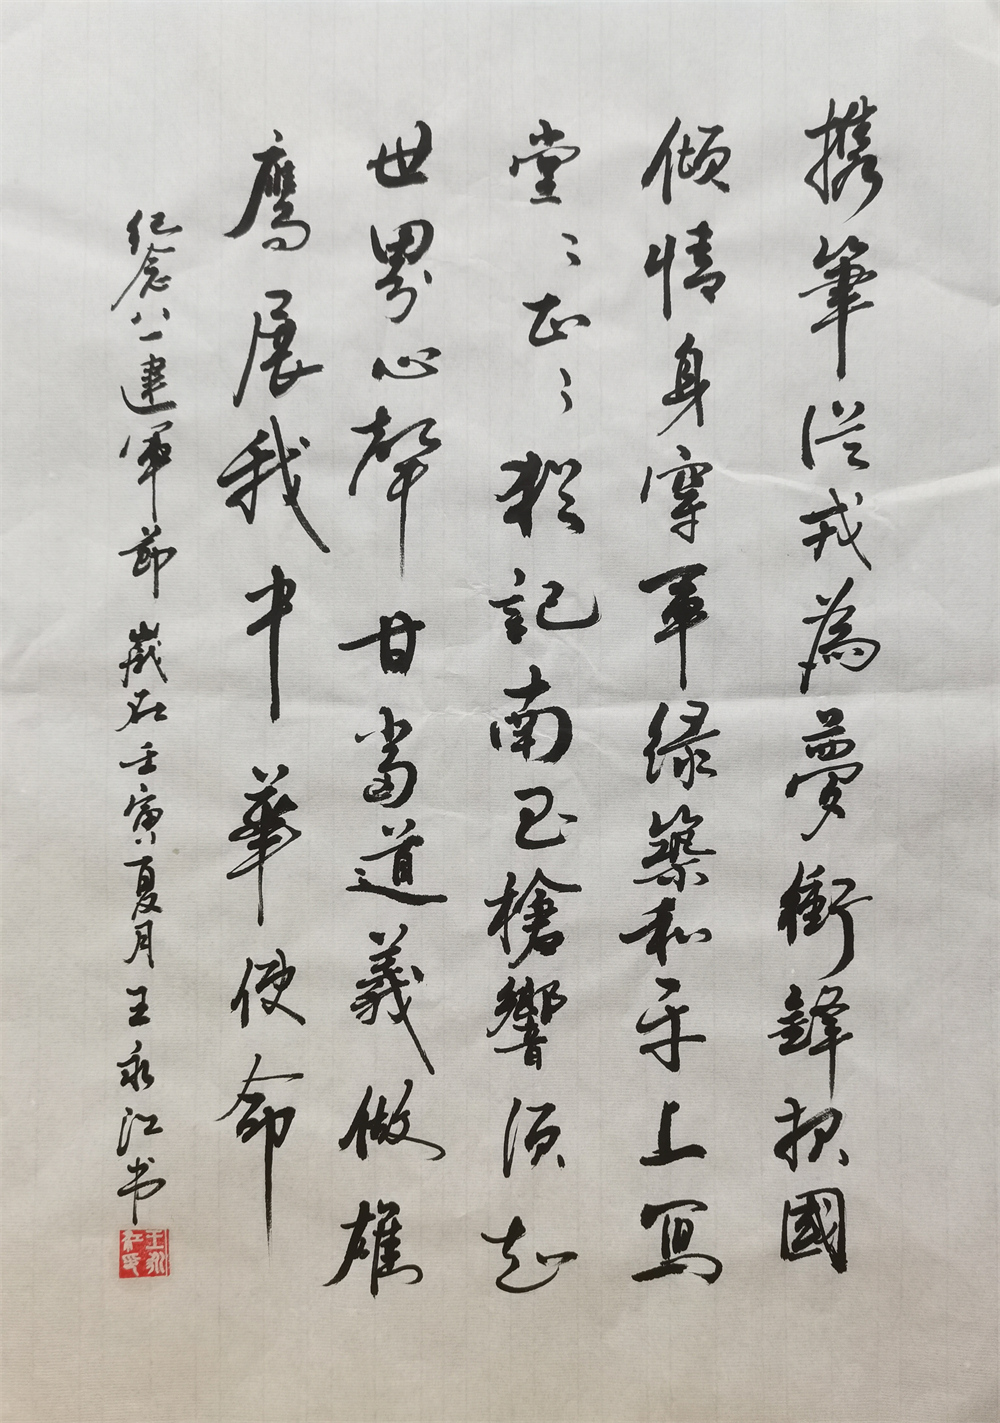 携筆從戎為夢衝鋒报國
倾情身穿军緑築和平上寫
堂〻正〻猶記南昌槍響须知
世界心聲甘當道義做雄
鷹展我中華使命
纪念八一建軍節 歲在壬寅夏月王永江书
王永江印